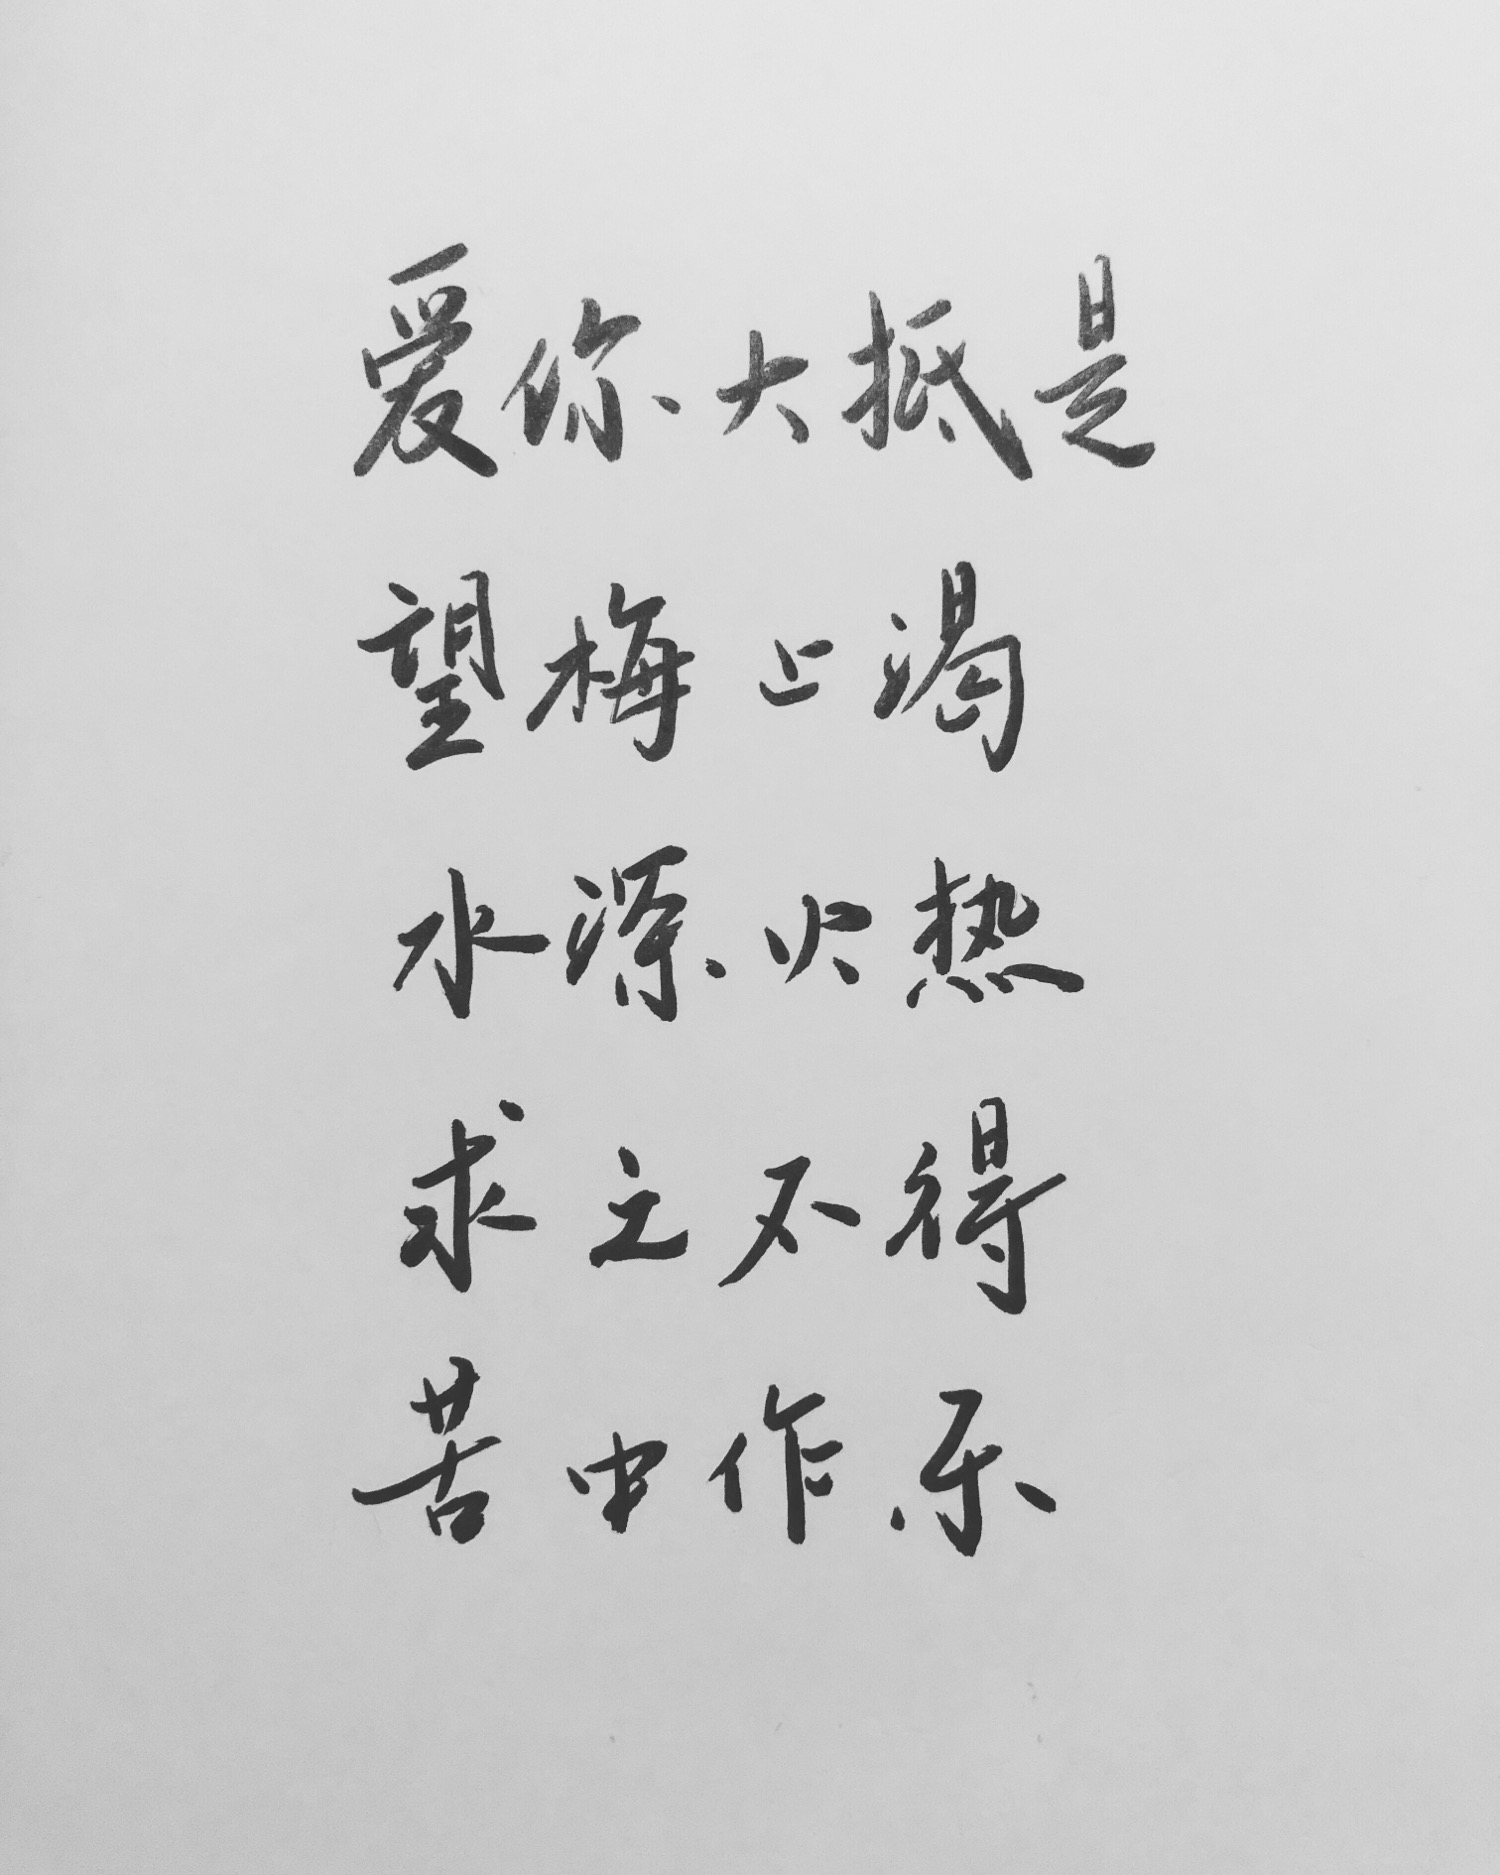 爱你大抵是
望梅止渴
水深火热
求之不得
苦中作乐